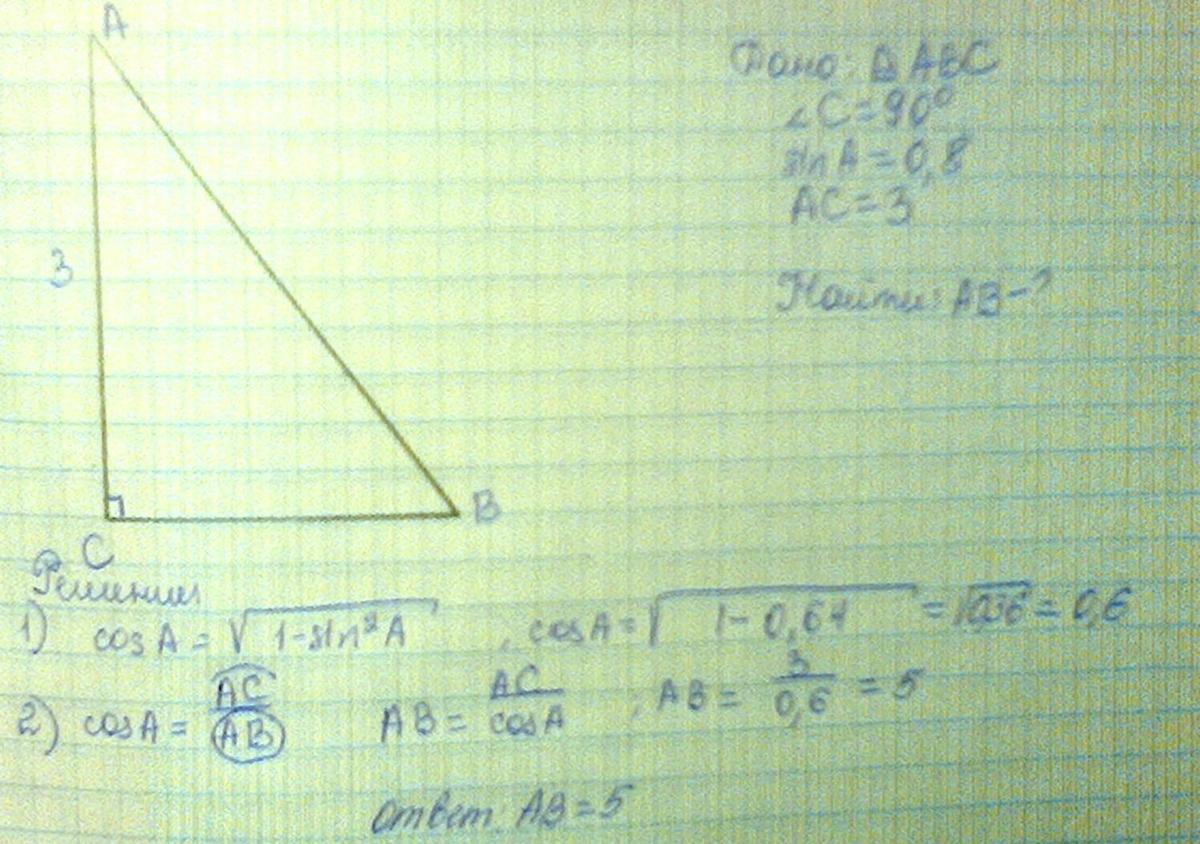 A
Дано: △ABC
∠C=90°
sin A = 0,8
AC = 3
3
Найти: AB - ?
B
C
Решение
1) cos A = √(1-sin²A) , cos A = √(1-0,64) = √0,36 = 0,6
2) cos A = AC/AB AB = AC/cos A , AB = 3/0,6 = 5
Ответ. AB = 5